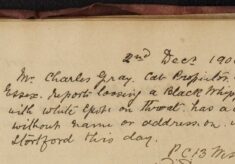 2nd Decr 190
Mr. Charles Gray. Cab Proprietor
Essex. reports lossing a Black Whipp
with white spot on throat has a
without name or address on
Stortford this day.
P.C. 13